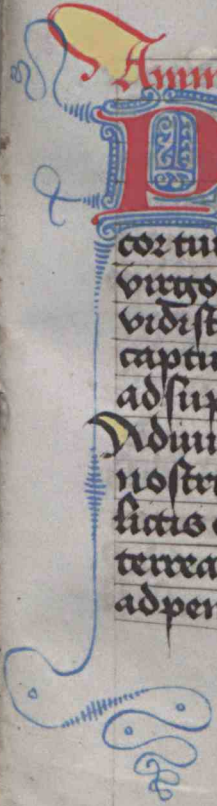 Amm
P
cor tu
virgo
vidist
captu
ad sup
Adiuu
nostri
lictis
terrea
ad pen